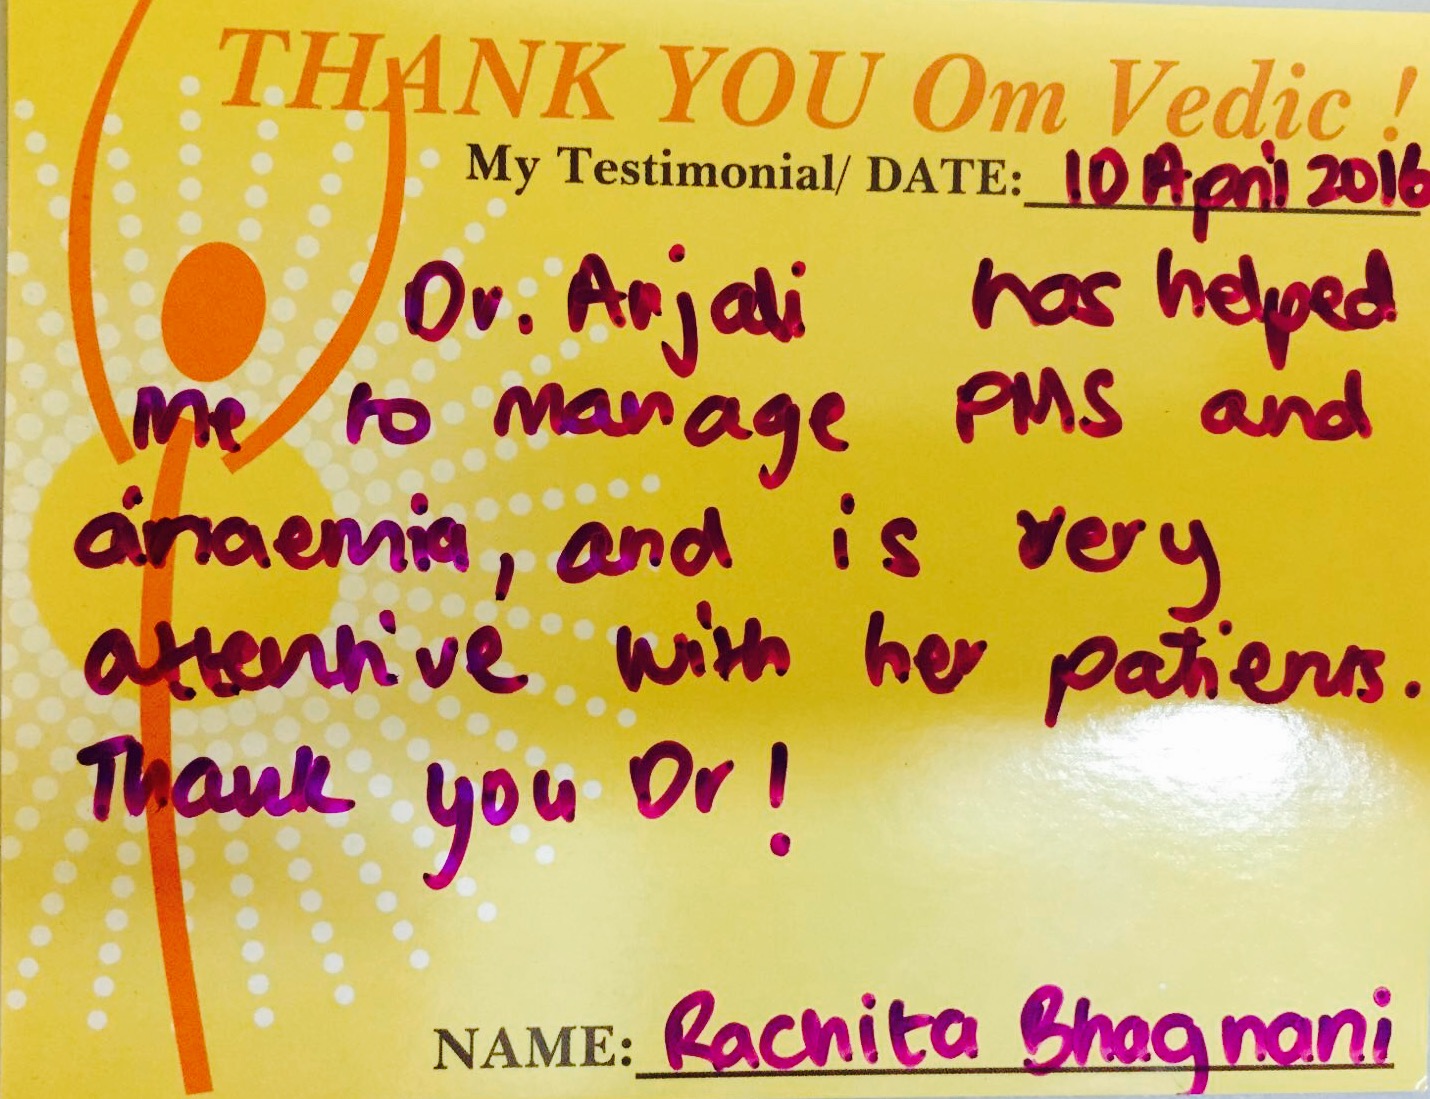 THANK YOU Om Vedic !
My Testimonial/ DATE: 10 April 2016
Dr. Anjali has helped
me to manage PMS and
anaemia, and is very
attentive with her patients.
Thank you Dr!
NAME: Rachita Bhagnani